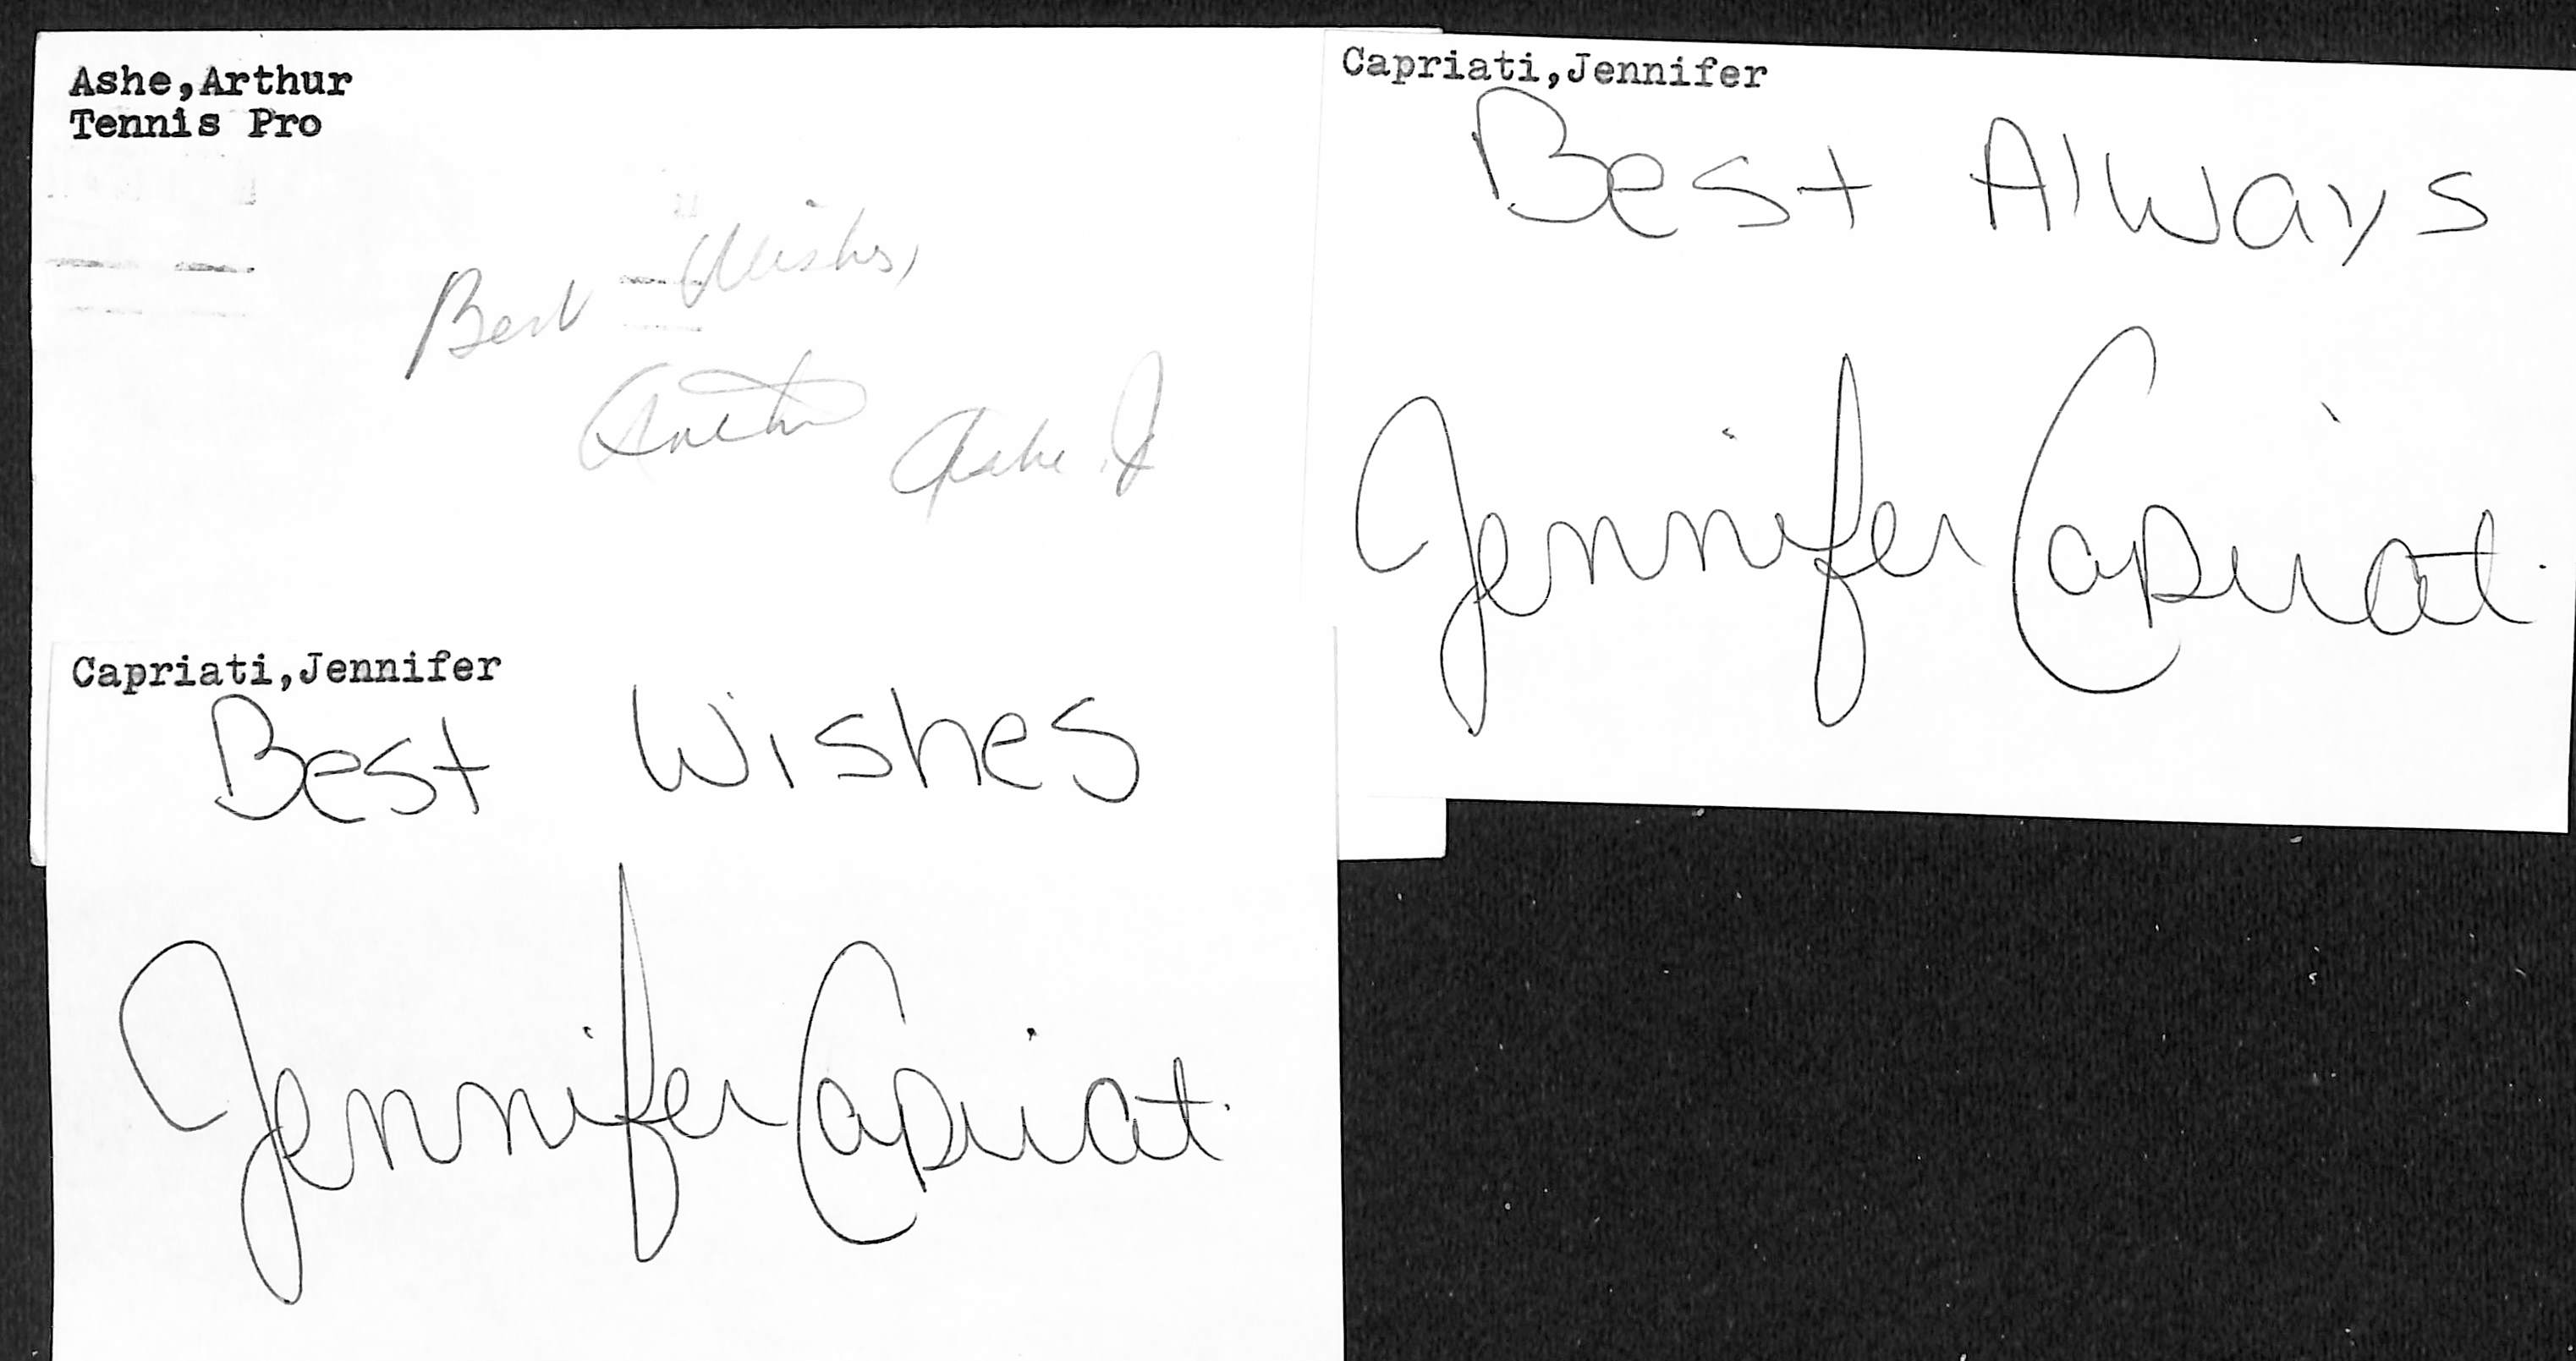 Ashe,Arthur
Tennis Pro
Best Wishes,
Arthur Ashe Jr
Capriati,Jennifer
Best Always
Jennifer Capriati
Capriati,Jennifer
Best Wishes
Jennifer Capriati